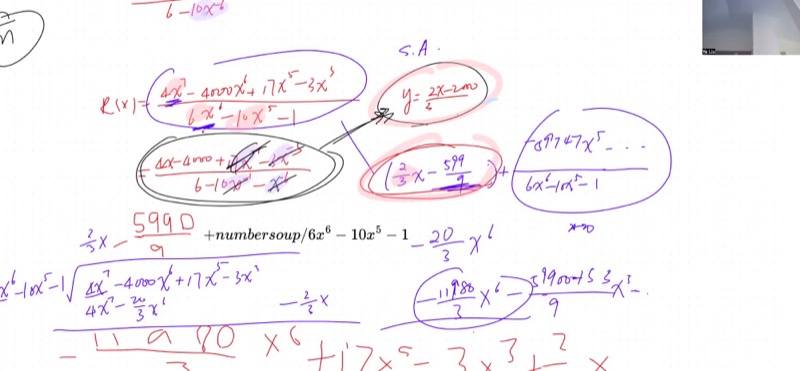 6 - 10x^-6
n
S.A.
R(x) = (4x^7 - 4000x^6 + 17x^5 - 3x^3) / (6x^6 - 10x^5 - 1)
y = (2x - 2000) / 3
= (4x - 4000 +
6 - 10x^-1 - x^-6
(2/3 x - 599 / 9) + (-59747x^5 ...) / (6x^6 - 10x^5 - 1)
2/3 x - 5990 / 9 +numbersoup/6x^6 − 10x^5 − 1 - 20/3 x^6
x^6 - 10x^5 - 1 √ 4x^7 - 4000x^6 + 17x^5 - 3x^3
4x^7 - 20/3 x^6 - 2/3 x
- 11980/3 x^6 - 59900 + 53 / 9 x^5 - ..
- 11980 / 3 x^6 + 17x^5 - 3x^3 + 2 x